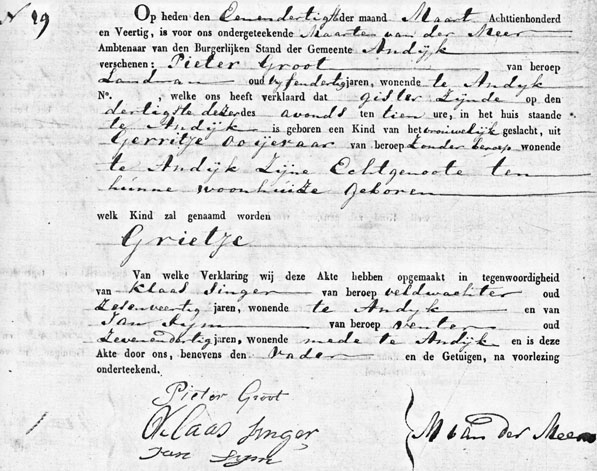 N 29
Op heden den Eenendertigst der maand Maart Achttienhonderd
en Veertig, is voor ons ondergeteekende Maarten van der Meer
Ambtenaar van den Burgerlijken Stand der Gemeente Andijk
verschenen: Pieter Groot van beroep
Landman oud vyfendertig jaren, wonende te Andyk
No. , welke ons heeft verklaard dat gister zijnde op den
dertigste dezer des avonds ten tien ure, in het huis staande
te Andijk is geboren een Kind van het vrouwelijk geslacht, uit
Gerritje Ooyevaar van beroep zonder beroep wonende
te Andijk Zijne Echtgenoote ten
hunne woonhuize geboren
welk Kind zal genaamd worden
Grietje
Van welke Verklaring wij deze Akte hebben opgemaakt in tegenwoordigheid
van Klaas Singer van beroep veldwachter oud
Zesenveertig jaren, wonende te Andyk en van
Jan Sym van beroep venter oud
Zevenendertig jaren, wonende mede te Andijk en is deze
Akte door ons, benevens den Vader en de Getuigen, na voorlezing
onderteekend.
Pieter Groot
Klaas Singer
Jan Sym
M van der Meer